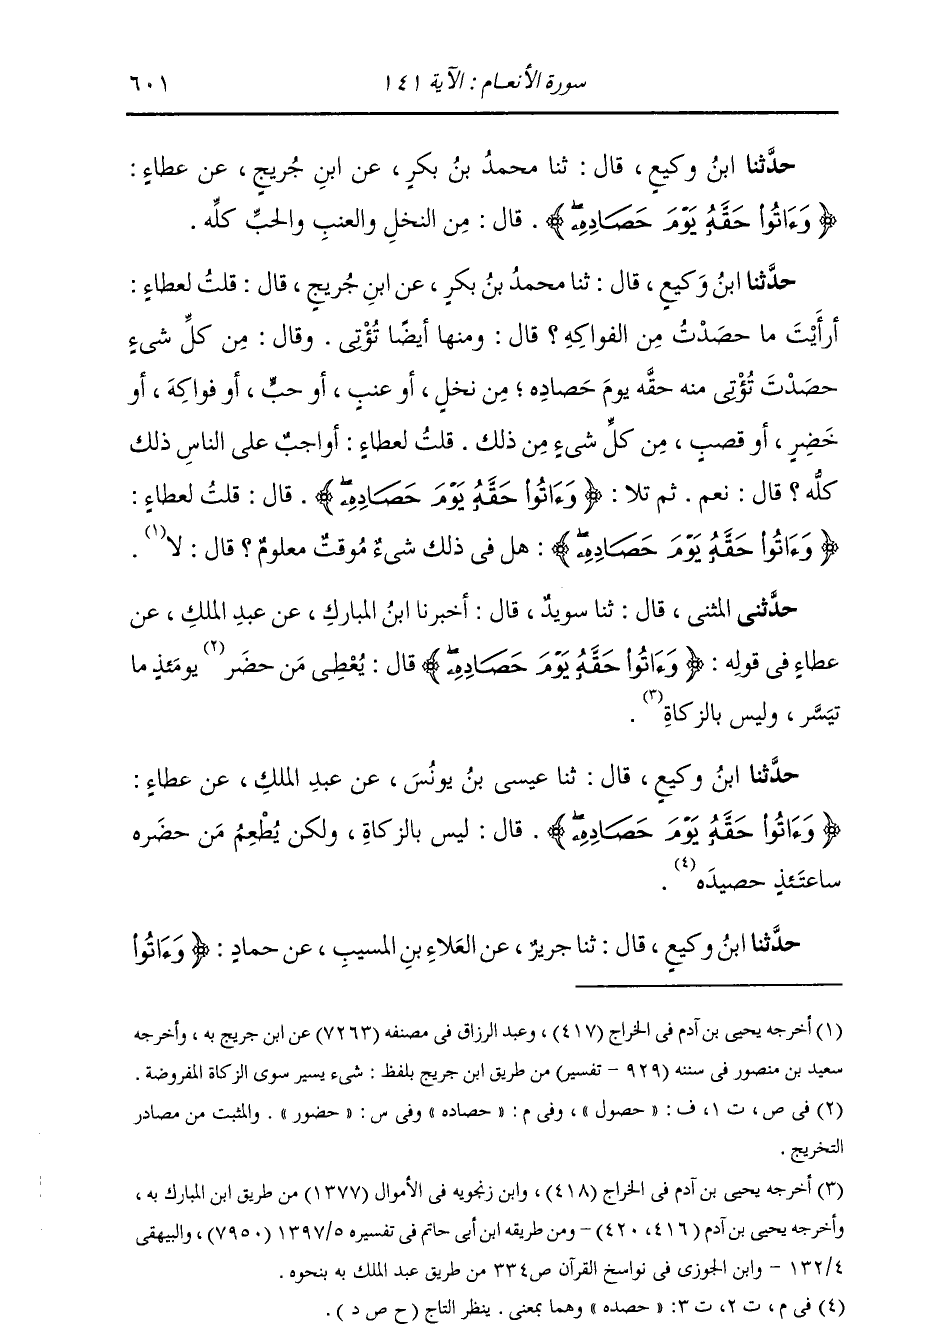 سورة الأنعام : الآية ١٤١ ٦٠١
حدَّثنا ابنُ وكيعٍ ، قال : ثنا محمدُ بنُ بكرٍ ، عن ابنِ جُريجٍ ، عن عطاءٍ :
﴿ وَءَاتُوا۟ حَقَّهُۥ يَوْمَ حَصَادِهِۦۖ ﴾ . قال : مِن النخلِ والعنبِ والحبِّ كلِّه .
حدَّثنا ابنُ وَكيعٍ ، قال : ثنا محمدُ بنُ بكرٍ ، عن ابنِ جُريجٍ ، قال : قلتُ لعطاءٍ :
أرأَيْتَ ما حصَدْتُ مِن الفواكِهِ ؟ قال : ومنها أيضًا تُؤْتِى . وقال : مِن كلِّ شىءٍ
حصَدْتَ تُؤْتِى منه حقَّه يومَ حَصادِه ؛ مِن نخلٍ ، أو عنبٍ ، أو حبٍّ ، أو فواكِهَ ، أو
خَضِرٍ ، أو قصبٍ ، مِن كلِّ شىءٍ مِن ذلك . قلتُ لعطاءٍ : أواجبٌ على الناسِ ذلك
كلُّه ؟ قال : نعم . ثم تلا : ﴿ وَءَاتُوا۟ حَقَّهُۥ يَوْمَ حَصَادِهِۦۖ ﴾ . قال : قلتُ لعطاءٍ :
﴿ وَءَاتُوا۟ حَقَّهُۥ يَوْمَ حَصَادِهِۦۖ ﴾ : هل فى ذلك شىءٌ مُوقتٌ معلومٌ ؟ قال : لا(١) .
حدَّثنى المثنى ، قال : ثنا سويدٌ ، قال : أخبرنا ابنُ المباركِ ، عن عبدِ الملكِ ، عن
عطاءٍ فى قولِه : ﴿ وَءَاتُوا۟ حَقَّهُۥ يَوْمَ حَصَادِهِۦۖ ﴾ قال : يُعْطِى مَن حضَر(٢) يومَئذٍ ما
تيَسَّر ، وليس بالزكاةِ(٣) .
حدَّثنا ابنُ وكيعٍ ، قال : ثنا عيسى بنُ يونُسَ ، عن عبدِ الملكِ ، عن عطاءٍ :
﴿ وَءَاتُوا۟ حَقَّهُۥ يَوْمَ حَصَادِهِۦۖ ﴾ . قال : ليس بالزكاةِ ، ولكن يُطْعِمُ مَن حضَره
ساعتَئذٍ حصيدَه(٤) .
حدَّثنا ابنُ وكيعٍ ، قال : ثنا جريرٌ ، عن العَلاءِ بنِ المسيبِ ، عن حمادٍ : ﴿ وَءَاتُوا۟
(١) أخرجه يحيى بن آدم فى الخراج (٤١٧) ، وعبد الرزاق فى مصنفه (٧٢٦٣) عن ابن جريج به ، وأخرجه
سعيد بن منصور فى سننه (٩٢٩ - تفسير) من طريق ابن جريج بلفظ : شىء يسير سوى الزكاة المفروضة .
(٢) فى ص ، ت ١، ف : « حصول » ، وفى م : « حصاده » وفى س : « حضور » . والمثبت من مصادر
التخريج .
(٣) أخرجه يحيى بن آدم فى الخراج (٤١٨) ، وابن زنجويه فى الأموال (١٣٧٧) من طريق ابن المبارك به ،
وأخرجه يحيى بن آدم (٤١٦، ٤٢٠) - ومن طريقه ابن أبى حاتم فى تفسيره ١٣٩٧/٥ (٧٩٥٠) ، والبيهقى
١٣٢/٤ - وابن الجوزى فى نواسخ القرآن ص٣٣٤ من طريق عبد الملك به بنحوه .
(٤) فى م ، ت ٢، ت ٣: « حصده » وهما بمعنى . ينظر التاج (ح ص د ) .